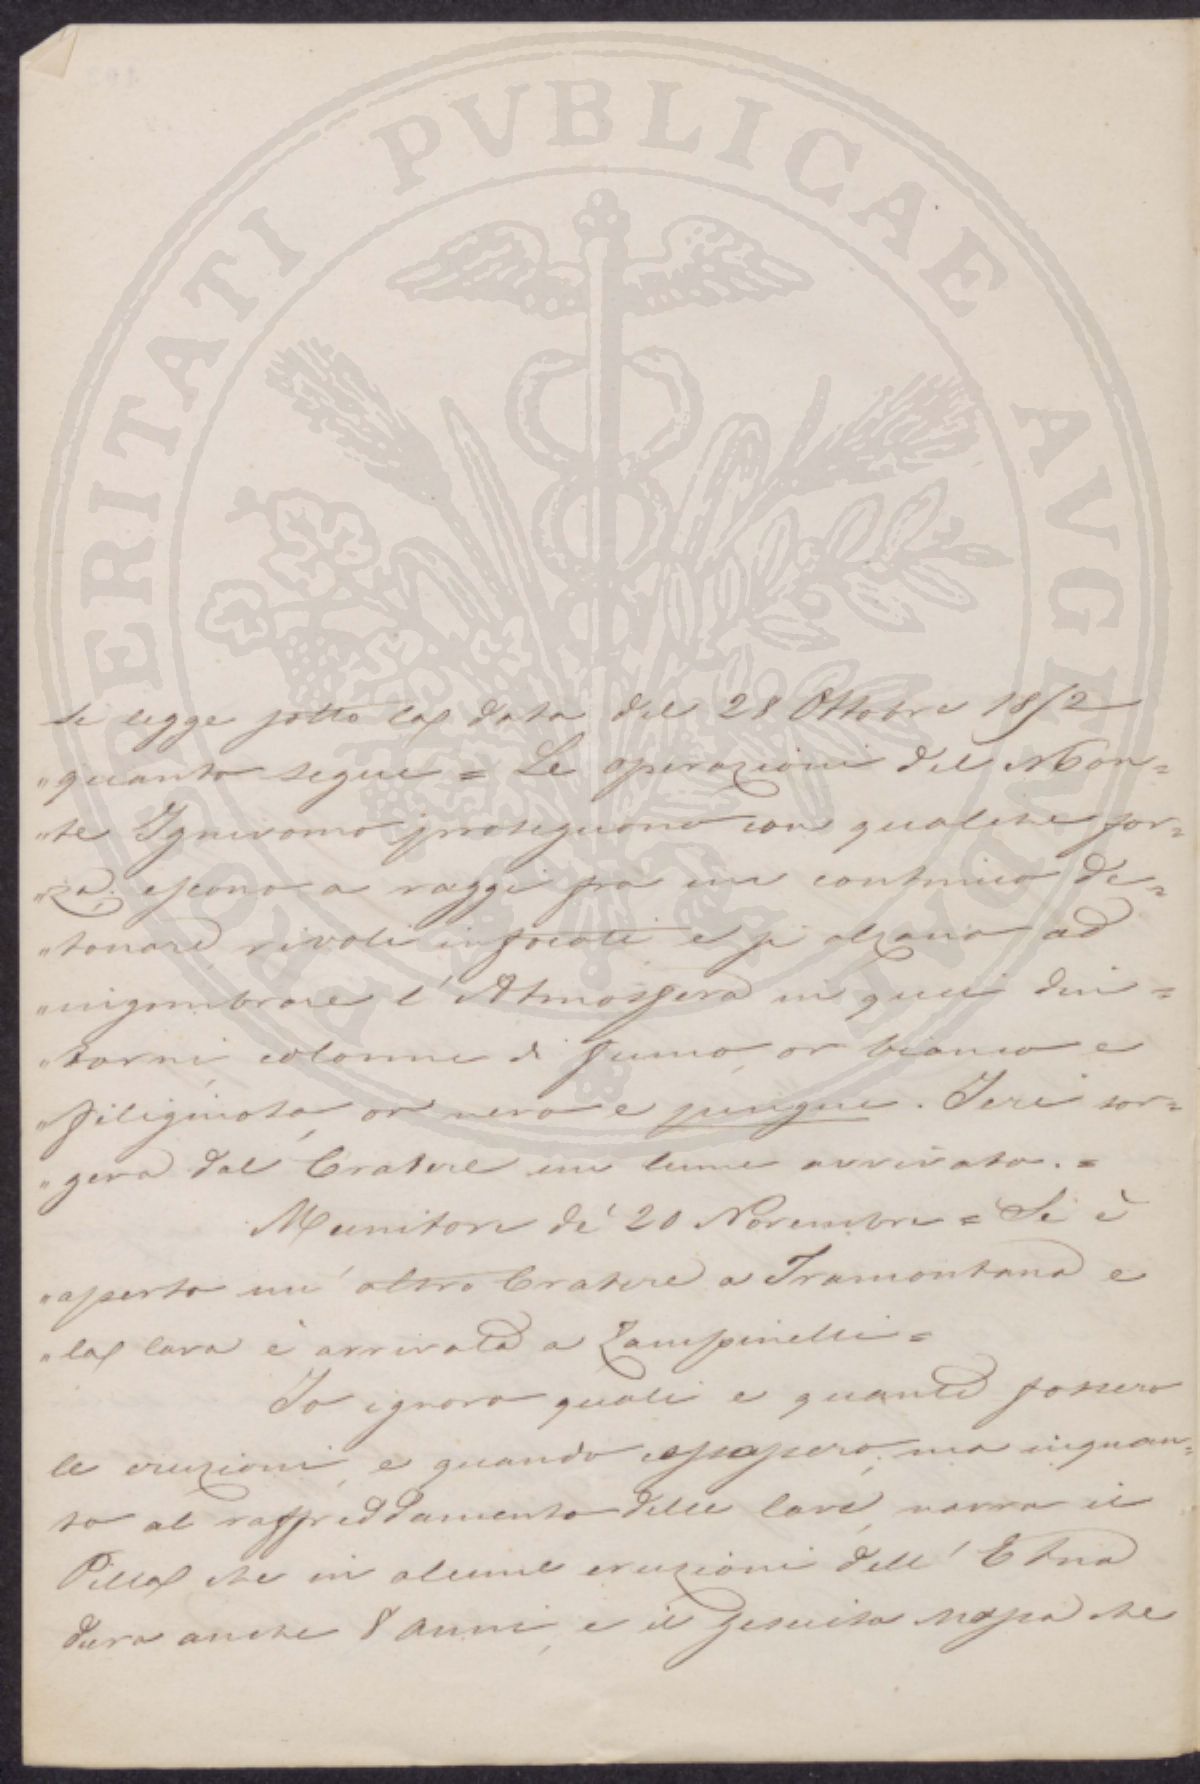 PROSPERITATI PVBLICAE AVGENDAE
si legge sotto la data del 28 Ottobre 1852
"quanto segue = Le operazioni del Mon=
"te Ignivomo proseguono con qualche for=
"za; escono a raggi fra un continuo de=
"tonare, rivoli infocati e si alzano ad
"ingombrare l'Atmosfera in quei din=
"torni, colonne di fumo, or bianco e
"filiginoso, or nero e pingue. Ieri sor=
"geva dal Cratere un lume avvivato.=
Munitore de' 20 Novembre = Si è
"aperto un' altro Cratere a Tramontana e
"la lava è arrivata a Zampinelli=
Io ignoro quali e quante fossero
le eruzioni, e quando; ma inquan=
to al raffreddamento delle lave, narra il
Pilla che in alcune eruzioni dell' Etna
dura anche 8 anni, e il Gesuita che